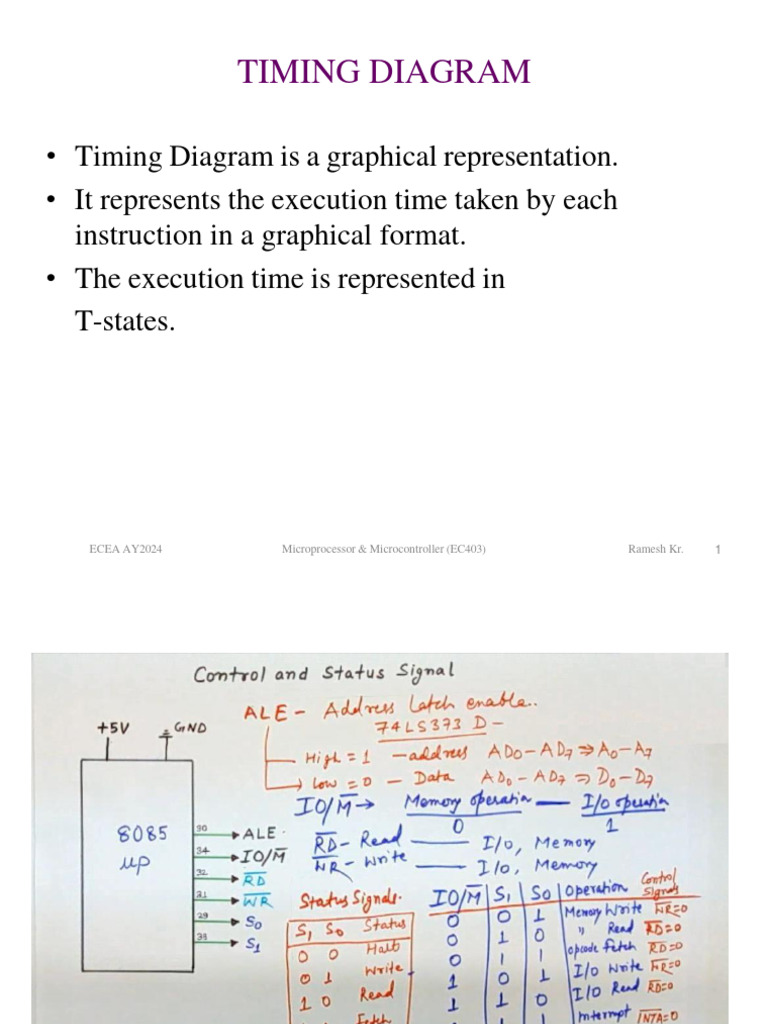 TIMING DIAGRAM
• Timing Diagram is a graphical representation.
• It represents the execution time taken by each
instruction in a graphical format.
• The execution time is represented in
T-states.
ECEA AY2024 Microprocessor & Microcontroller (EC403) Ramesh Kr. 1
Control and Status Signal
ALE - Address Latch enable..
74LS373 D-
+5V GND
High = 1 - address AD0-AD7 ⇒ A0-A7
Low = 0 - Data AD0-AD7 ⇒ D0-D7
IO/M̅ → Memory operation - I/o operation
0 1
8085
μp
30 ALE.
34 IO/M̅
32 R̅D̅
31 W̅R̅
29 S0
33 S1
R̅D̅ - Read I/o, Memory
W̅R̅ - Write I/o, Memory
Status Signals.
S1 S0 Status
0 0 Halt
0 1 Write
1 0 Read
Fetch
IO/M̅ S1 S0 Operation Control Signals
0 0 1 Memory Write W̅R̅=0
0 1 0 " Read R̅D̅=0
0 1 1 opcode Fetch R̅D̅=0
1 0 1 I/o Write W̅R̅=0
1 1 0 I/o Read R̅D̅=0
Interrupt I̅N̅T̅A̅=0